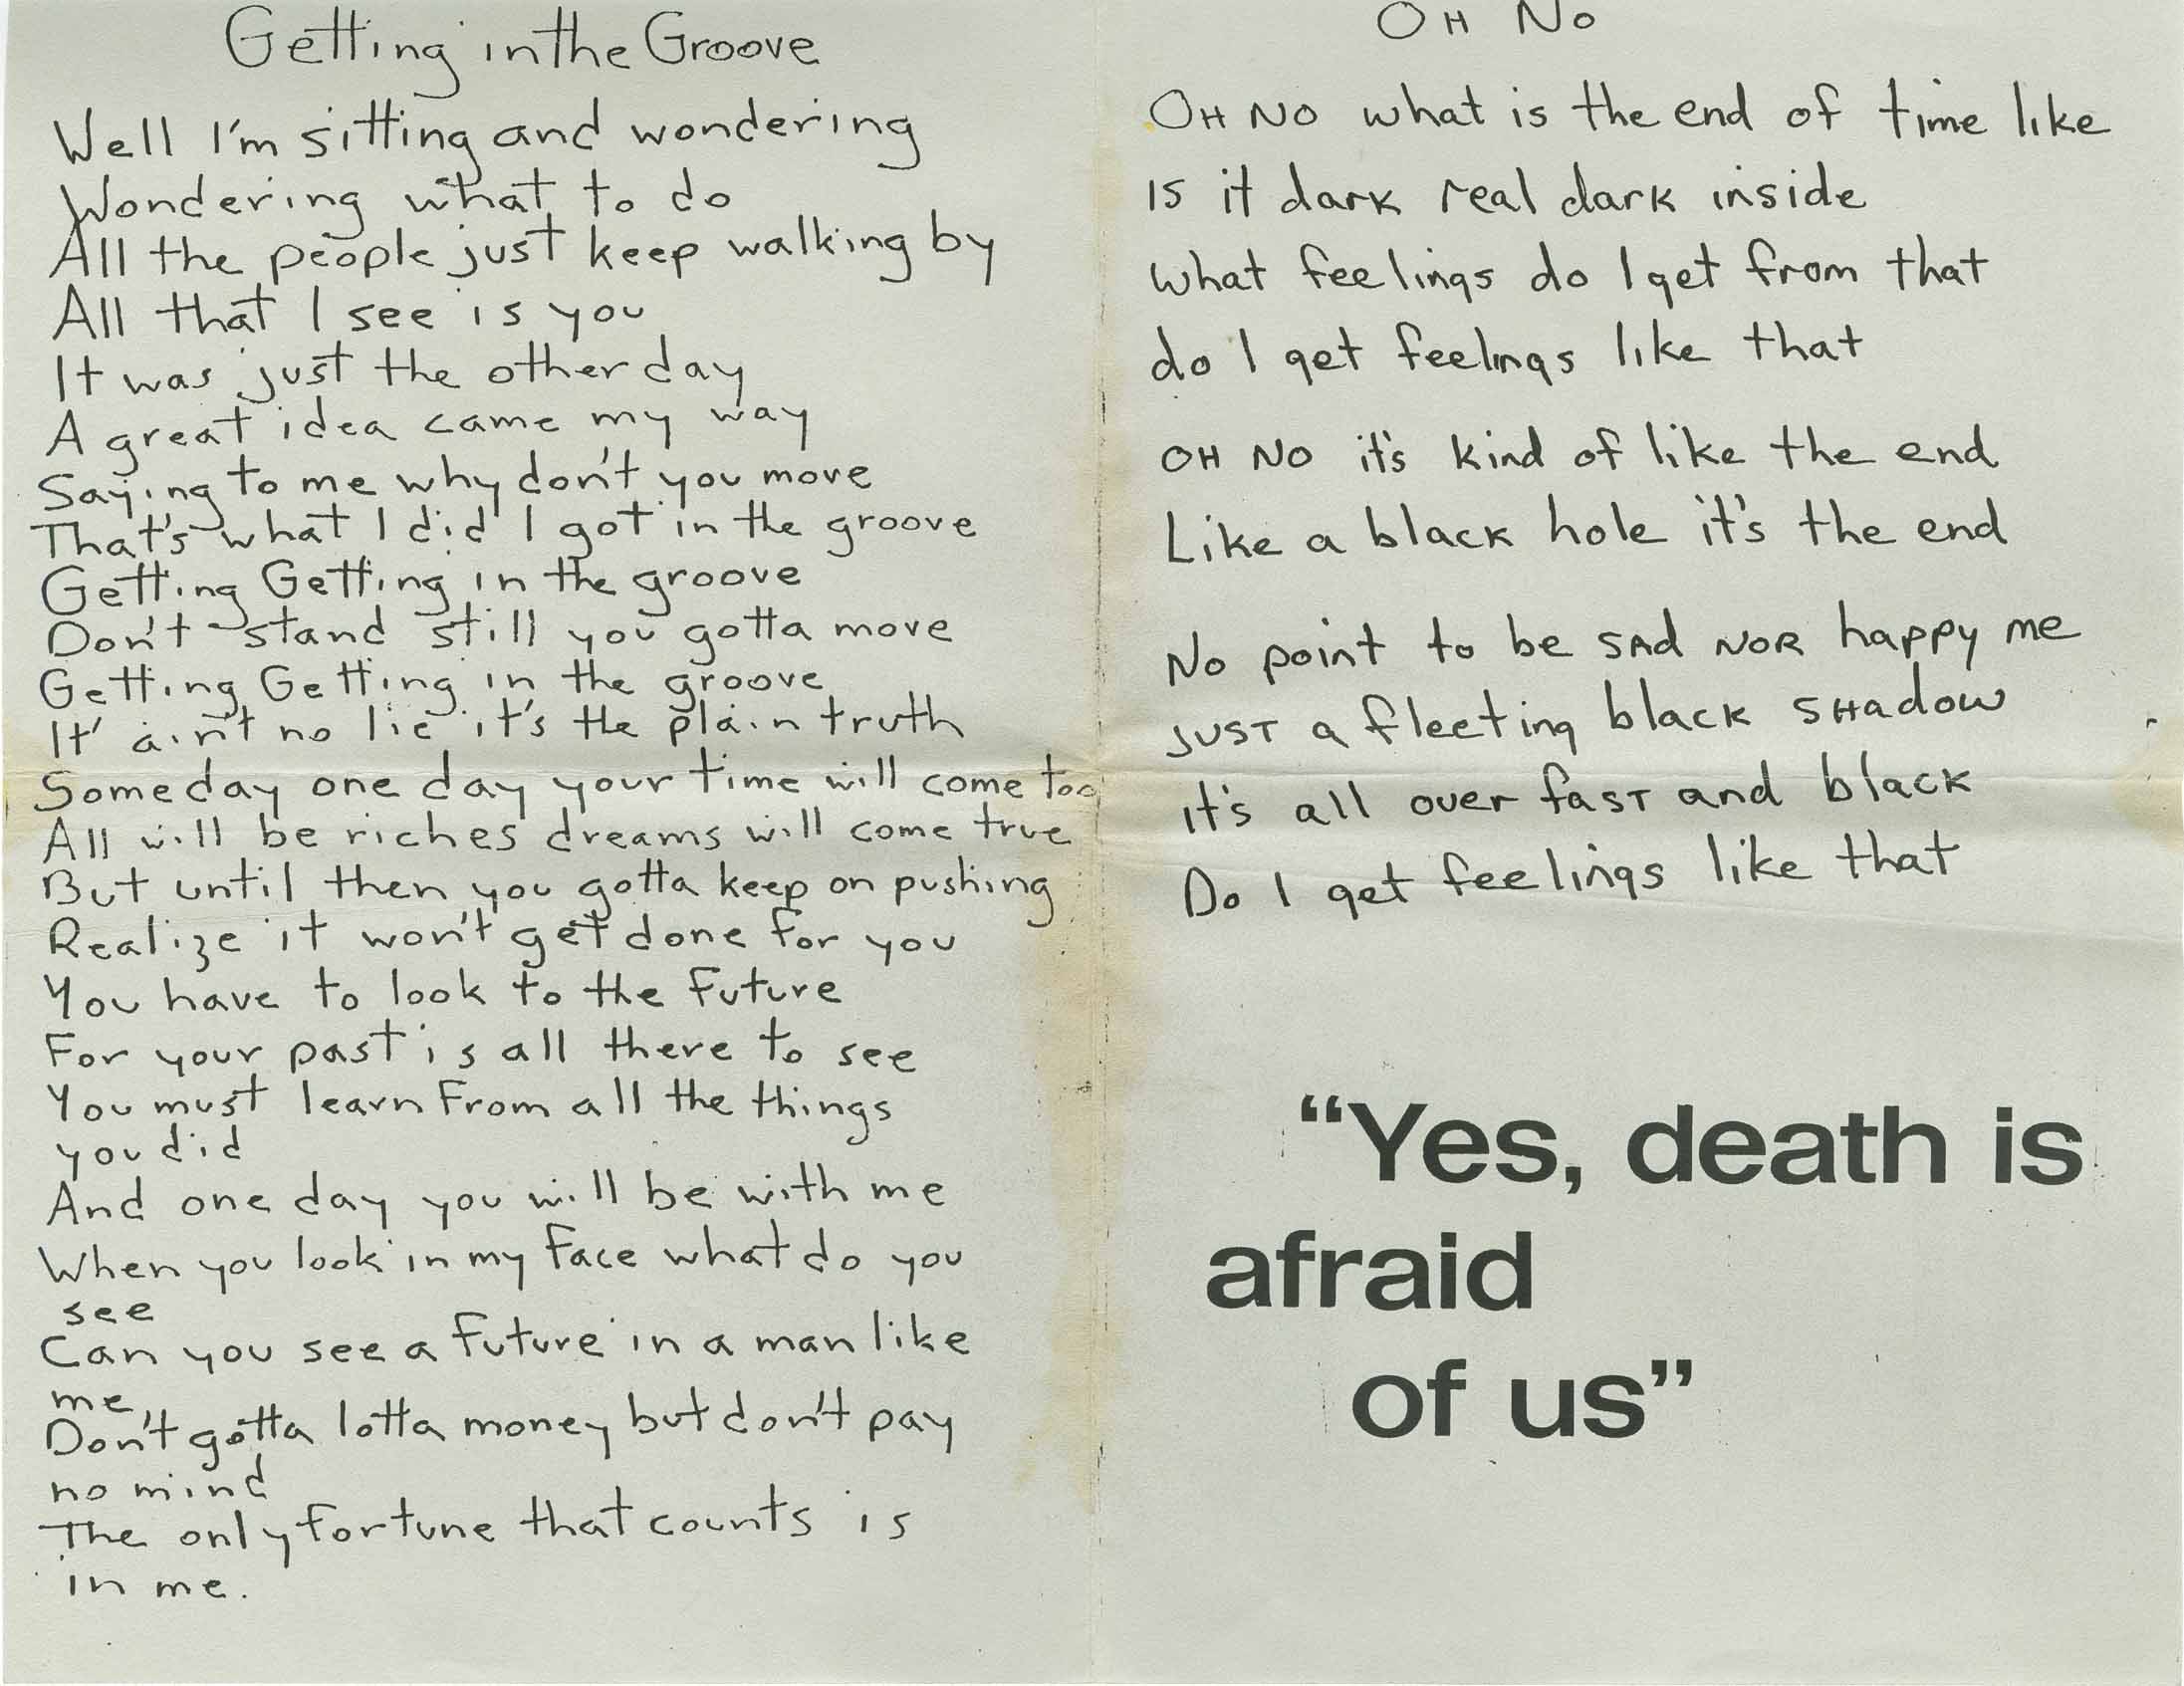 Getting in the Groove
Well I'm sitting and wondering
Wondering what to do
All the people just keep walking by
All that I see is you
It was just the other day
A great idea came my way
Saying to me why don't you move
That's what I did I got in the groove
Getting Getting in the groove
Don't stand still you gotta move
Getting Getting in the groove
It ain't no lie it's the plain truth
Someday one day your time will come too
All will be riches dreams will come true
But until then you gotta keep on pushing
Realize it won't get done for you
You have to look to the future
For your past is all there to see
You must learn from all the things
you did
And one day you will be with me
When you look in my face what do you
see
Can you see a future in a man like
me
Don't gotta lotta money but don't pay
no mind
The only fortune that counts is
in me.
OH NO
OH NO what is the end of time like
is it dark real dark inside
what feelings do I get from that
do I get feelings like that
OH NO it's kind of like the end
Like a black hole it's the end
No point to be SAd NOR happy me
JUST a fleeting black SHadow
it's all over fast and black
Do I get feelings like that
“Yes, death is
afraid
of us”